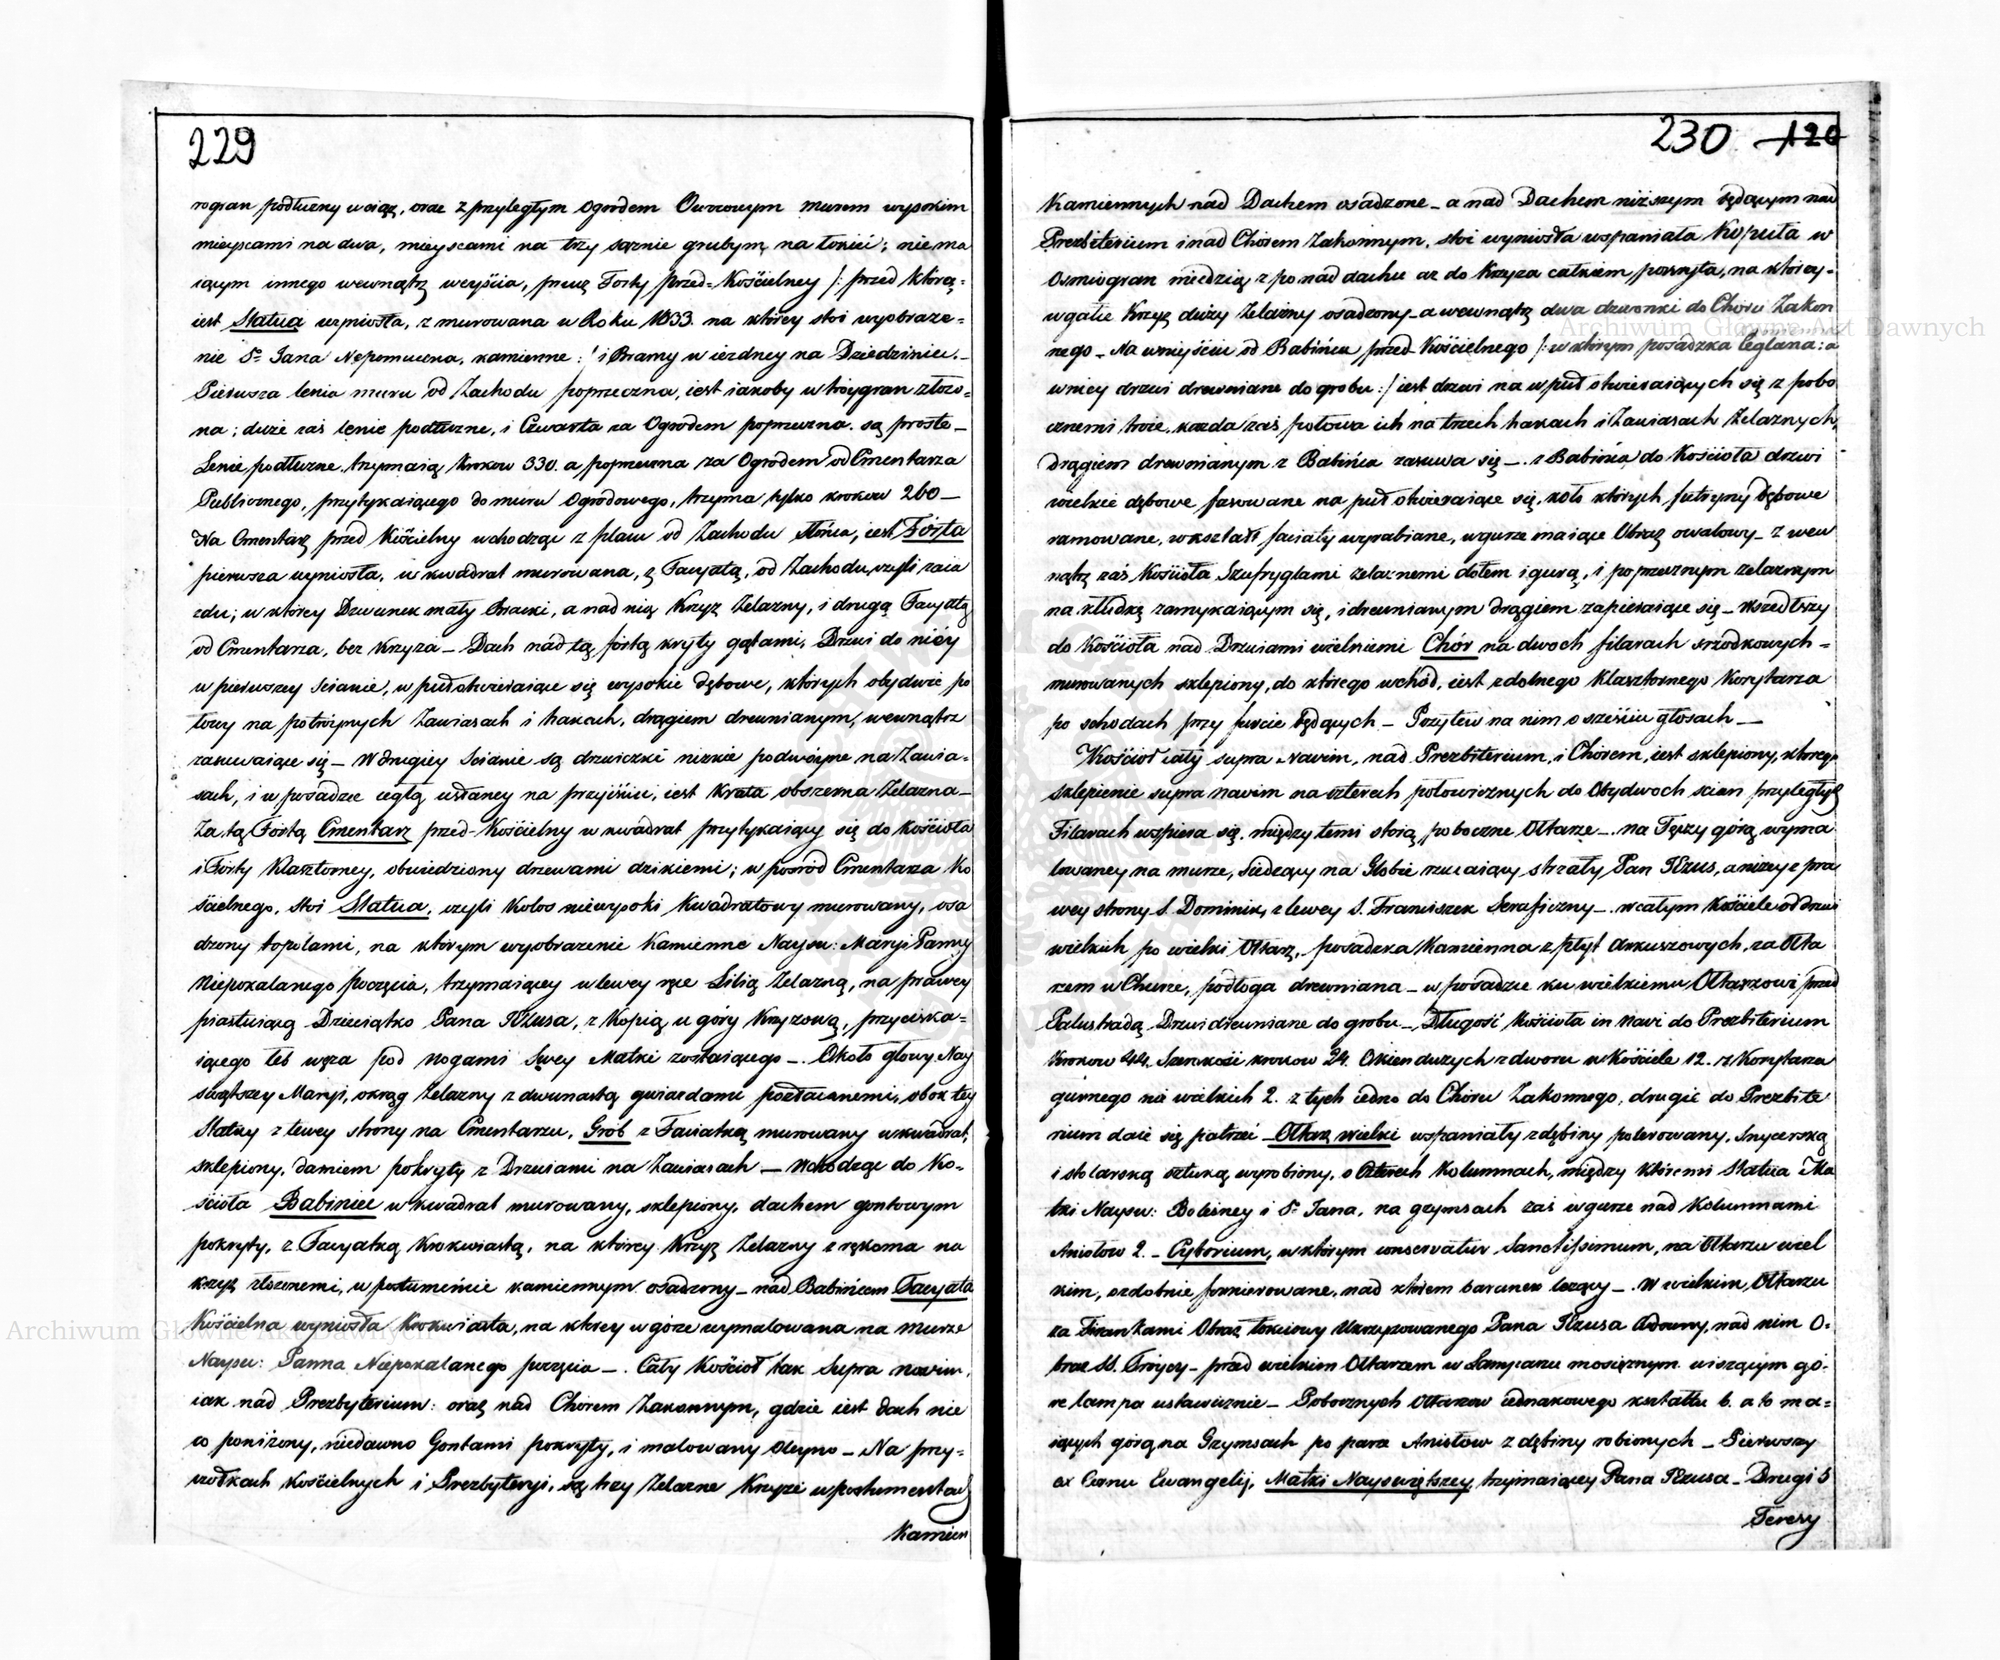 229
rogran podłużny w ciąg, oraz z przyległym Ogrodem Owocowym murem wysokim
mieyscami na dwa, mieyscami na trzy sążnie grubym, na łokieć; nie ma
iącym innego wewnątrz weyścia, prucz Forty przed-Kościelney /: przed którą
iest Statua wyniosła, z murowana w Roku 1833. na którey stoi wyobraże-
nie Sº Jana Nepomucena, kamienne :/ i Bramy w iezdney na Dziedziniec.-
Pierwsza lenia muru od Zachodu poprzeczna, iest iakoby w troygran złożo-
na; dwie zaś lenie podłużne, i Czwarta za Ogrodem poprzeczna. są proste_
Lenie podłużne, trzymaią Krokow 330. a poprzeczna za Ogrodem od Cmentarza
Publicznego, przytykaiącego do muru Ogrodowego, trzyma tylko krokow 260_
Na Cmentarz przed Kościelny wchodząc z placu od Zachodu słońca, iest Fórta
pierwsza wyniosła, w kwadrat murowana, z Facyatą, od Zachodu czyli zaia
zdu; w którey Dzwonek mały Bracki, a nad nią Krzyż Żelazny, i drugą Facyatą
od Cmentarza, bez Krzyża_ Dach nad tą fortą kryty gątami, Drzwi do niéy
w pierwszey ścianie, w puł otwieraiące się wysokie dębowe, których obydwie po
łowy na potróynych Zawiasach i hakach, drągiem drewnianym, wewnątrz
zasuwaiące się_ W drugiey ścianie są drzwiczki nizkie podwóyne na Zawia-
sach, i w posadzce cegłą usłaney na przyjściu, iest Krata obszerna Żelazna_
Za tą Fórtą Cmentarz przed-Kościelny w kwadrat przytykaiący się do Kościoła
i Forty Klasztorney, obwiedziony drzewami dzikiemi; w pośród Cmentarza Ko
ścielnego, stoi Statua, czyli Kolos niewysoki Kwadratowy murowany, osa
dzony topolami, na którym wyobrażenie Kamienne Nayśw: Maryi Panny
Niepokalanego poczęcia, trzymaiącey w lewey ręce Lilią Żelazną, na prawey
piastuiącą Dzieciątko Pana JEzusa, z Kopią u góry Krzyżową, przyciska-
iącego łeb węża pod nogami Swey Matki zostaiącego_. Około głowy Nay
świętszey Maryi, okrąg żelazny z dwunastą gwiazdami pozłacanemi, obok tey
Statuy z lewey strony na Cmentarzu, Grób z Faciatką murowany w kwadrat,
sklepiony, daniem pokryty z Drzwiami na Zawiasach _ Wchodząc do Ko-
ścioła Babiniec w kwadrat murowany, sklepiony, dachem gontowym
pokryty, z Facyatką Krokwiastą, na którey Krzyż Żelazny z rękoma na
krzyż złożonemi, w postumencie kamiennym osadzony_ nad Babińcem Facyata
Kościelna wyniosła Krokwiasta, na którey w górze wymalowana na murze
Nayśw: Panna Niepokalanego poczęcia_. Cały Kościoł tak Supra navim,
iak nad Prezbyterium: oraz nad Chorem Zakonnym, gdzie iest dach nie
co poniżony, niedawno Gontami pokryty, i malowany Oleyno_ Na przy-
czołkach Kościelnych i Prezbyteryi, są trzy Żelazne Krzyże w postumentach
Kamien
230 120
Kamiennych nad Dachem osadzone_ a nad Dachem niższym będącym nad
Prezbiterium i nad Chorem Zakonnym, stoi wyniosła wspaniała Kopuła w
Osmiogran miedzią z po nad dachu aż do Krzyża całkiem pokryta, na którey-
w gałce Krzyż duży Żelazny osadzony_ a wewnątrz dwa dzwonki do Chóru Zakon
nego_ Na wniyściu od Babińca przed-Kościelnego /: w którym posadzka ceglana: a
w niey drzwi drewniane do grobu :/ iest drzwi na w puł otwieraiących się z pobo
cznemi troie, każda zaś połowa ich na trzech hakach i Zawiasach Żelaznych,
drągiem drewnianym z Babińca zasuwa się_. z Babińca do Kościoła drzwi
wielkie dębowe fasowane na puł otwieraiące się, koło których futryny dębowe
ramowane, w kształt faciaty wyrabiane, w gurze maiące Obraz owalowy_ z wew
nątrz zaś Kościoła Szufryglami żelaznemi dołem i gurą, i poprzecznym żelaznym
na kłudkę zamykaiącym się, i drewnianym drągiem zapieraiące się_ Wszedłszy
do Kościoła nad Drzwiami wielkiemi Chór na dwoch filarach srzodkowych-
murowanych sklepiony, do którego wchód, iest z dolnego Klasztornego Korytarza
po schodach przy furcie będących_ Pozytew na nim o sześciu głosach_
Kościoł cały supra Navim, nad Prezbiterium, i Chórem, iest sklepiony, którego
sklepienie supra navim na czterech połowicznych do Obydwoch ścian przyległych
Filarach wspiera się. między temi stoią poboczne Ołtarze_. na Tęczy górą wyma
lowaney na murze, siedzący na Globie rzucaiący strzały Pan JEzus, a niżey z pra
wey strony S. Dominik, z lewey S. Franciszek Seraficzny_. w całym Kościele od drzwi
wielkich po wielki Ołtarz, posadzka Kamienna z płyt Arkuszowych, za Ołta
rzem w Chórze, podłoga drewniana_ w posadzce ku wielkiemu Ołtarzowi przed
Balustradą Drzwi drewniane do grobu_ Długość Kościoła in Navi do Prezbiterium
Krokow 44. Szerokości krokow 24. Okien dużych z dworu w Kościele 12. z Korytarza
gurnego na wielkich 2. z tych iedno do Chóru Zakonnego, drugie do Prezbite
rium daie się patrzeć_ Ołtarz wielki wspaniały z dębiny polerowany, Snycerską
i stolarską sztuką wyrobiony, o Czterech Kolumnach, między któremi Statua Ma
tki Nayśw: Boleśney i Sº Jana, na gzymsach zaś w gurze nad Kolumnami
Aniołow 2._ Cyborium, w którym conservatur Sanctissimum, na Ołtarzu wiel
kim, ozdobnie fornierowane, nad którem baranek leżący_. W wielkim Ołtarzu
za Firankami Obraz łokciowy Ukrzyżowanego Pana JEzusa cudowny, nad nim O-
braz SS. Tróycy_ przed wielkim Ołtarzem w Lamparzu mosiężnym wiszącym go-
re lampa ustawicznie_ Pobocznych Ołtarzow iednakowego kształtu 6. a to ma-
iących górą na Gzymsach po parze Aniołow z dębiny robionych_ Pierwszy
ex Cornu Ewangelij, Matki Nayświętszey, trzymaiącey Pana JEzusa_ Drugi S
Teresy
Archiwum Główne Akt Dawnych
Archiwum Główne Akt Dawnych